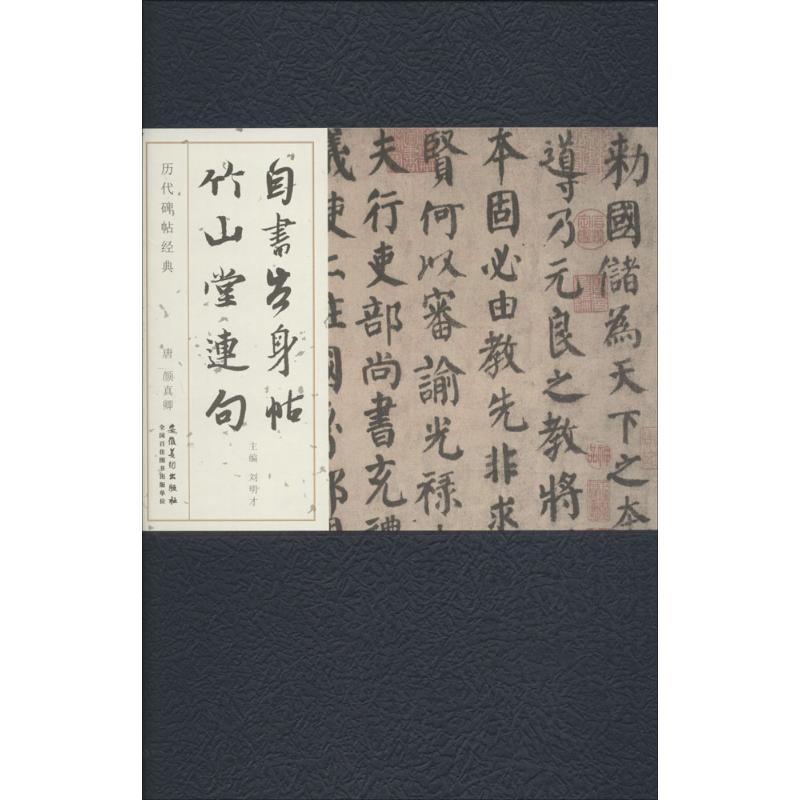 自書告身帖
竹山堂連句
历代碑帖经典
唐 颜真卿
主编 刘明才
安徽美术出版社
全国百佳图书出版单位
勅國儲為天下之本
導乃元良之教將
本固必由教先非求
賢何以審諭光禄
夫行吏部尚書充禮
儀使上柱國